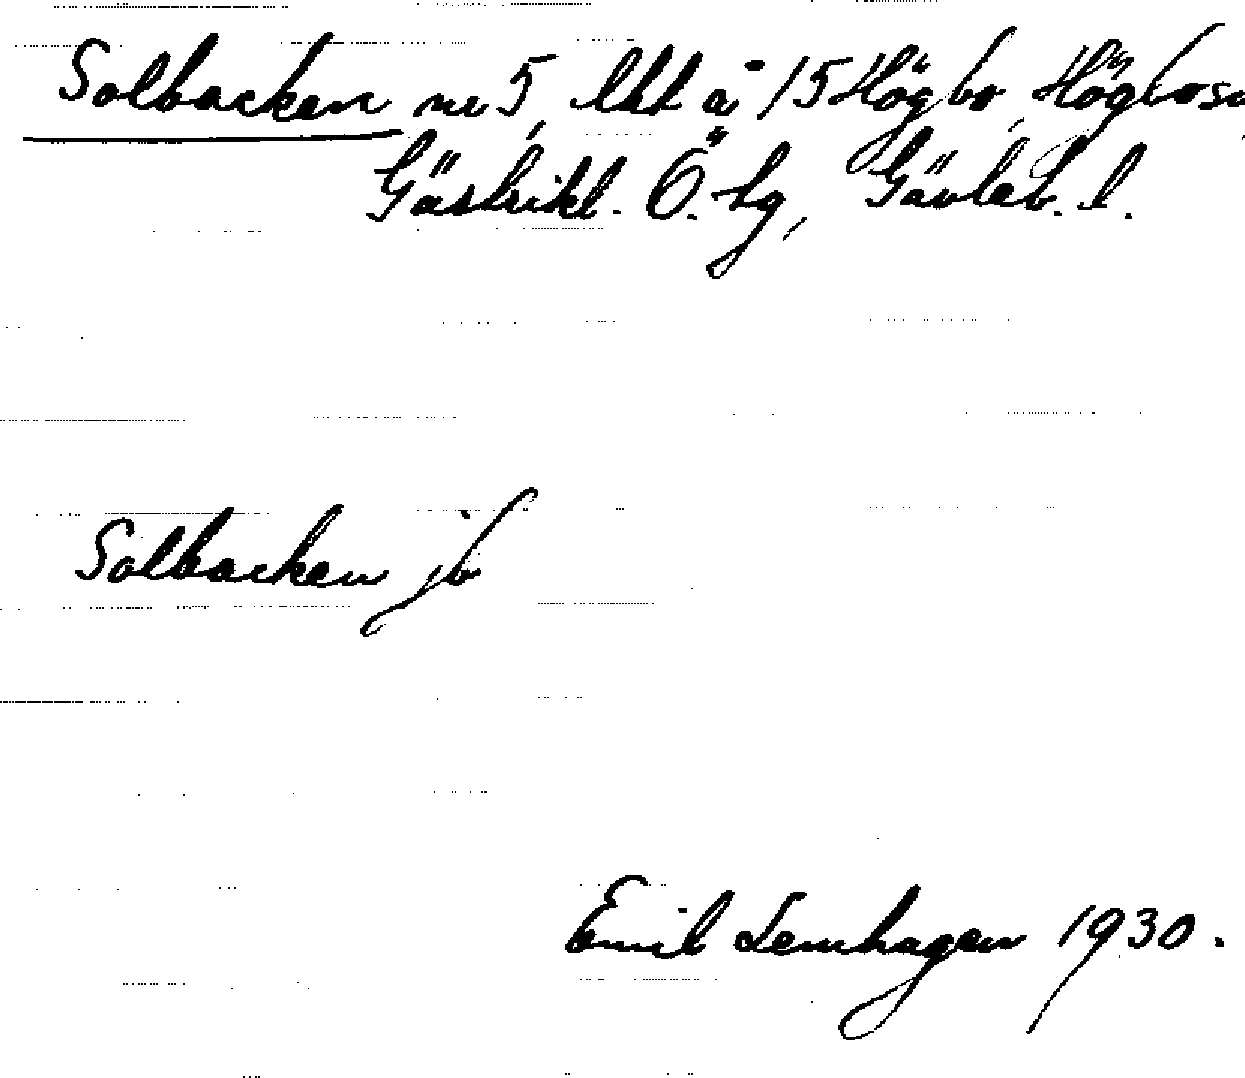 Solbacken nr 5, lht å 15 Högbo, Högbo sn
Gästrikl. Ö. tg, Gävleb. l.
Solbacken jb
Emil Lemhagen 1930.